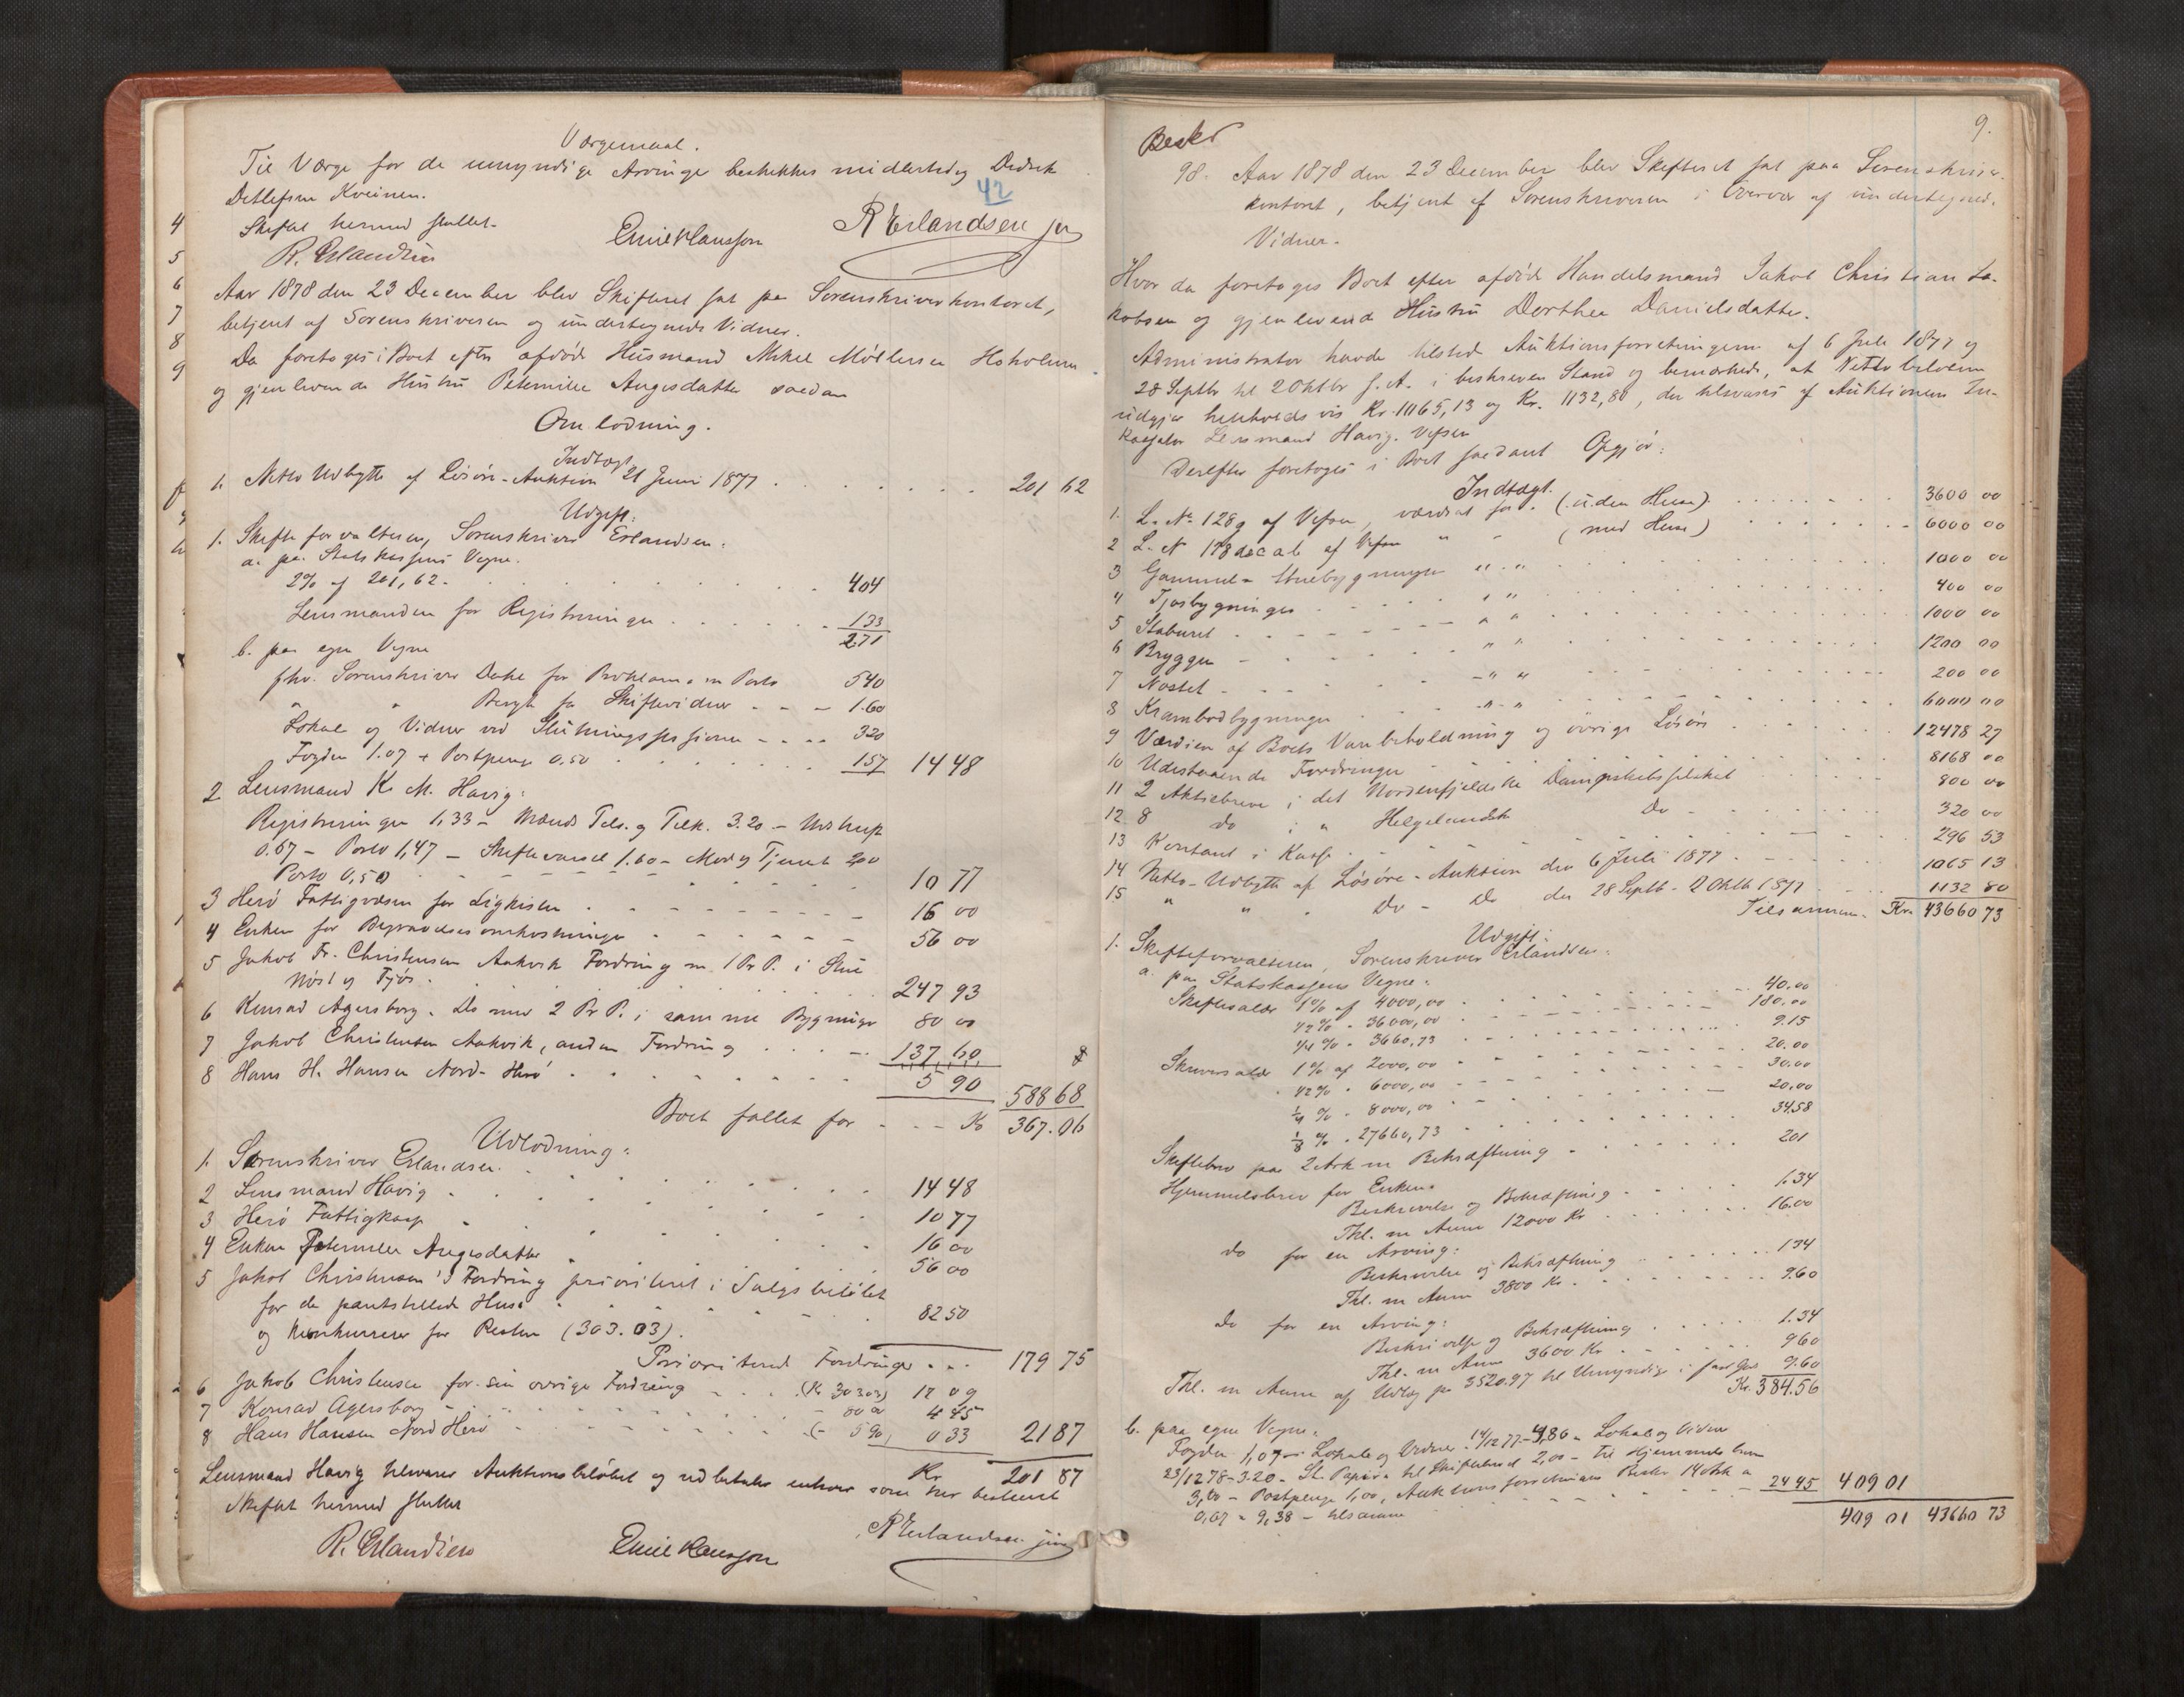 Værgemaal.
Til Værge for de umyndige Arvinger beskikkes midlertidig Didrik
Detlefsen Kveinen.
42
Skiftet hermed sluttet.
R. Erlandsen Emil Hansson R Erlandsen jun
Aar 1878 den 23 December blev Skifteret sat paa Sorenskriverkontoret,
betjent af Sorenskriveren og undertegnede Vidner.
Da foretoges i Boet efter afdøde Husmand Mikel Møllersen Hoholmen
og gjenlevende Hustru Peternille Angesdatter saadan
Omlodning.
Indtægt
1. Netto Udbytte af Løsøre-Auktion 21 Juni 1877 201 62
Udgift:
1. Skifteforvalteren, Sorenskriver Erlandsen:
a. paa Statskassens Vegne.
2% af 201,62 404
Lensmanden for Registreringen 133
271
b. paa egne Vegne
fhv. Sorenskriver Dahl for Proklama m Porto 540
" " Bergh for Skiftevidner 1.60
Lokale og Vidner ved Slutningssessionen 320
Fogden 1.07 + Postpenge 0,50 157 1448
2 Lensmand K. M. Havig:
Registreringen 1,33 - Mænds Tils. og Tilk. 3.20 - Udskrift
0.67 - Porto 1,47 - Skiftevarsel 1.60 - Mod og Tjenst 200
Porto 0,50 10 77
3 Herø Fattigvæsen for Ligkisten 16 00
4 Enken for Begravelsesomkostninger 56 00
5 Jakob Fr. Christensen Aakvik Fordring m. 1 Pr P. i Stue
Nøst og Fjøs 247 93
6 Konrad Agersborg. Do med 2 Pr P. i samme Bygninger 80 00
7 Jakob Christensen Aakvik, anden Fordring 137 60
8 Hans H. Hansen Nord-Herø 5 90 588 68
Boet fallet for Kr 367.06
Udlodning:
1. Sorenskriver Erlandsen 1448
2 Lensmand Havig 1077
3 Herø Fattigkasse 16 00
4 Enken Peternille Angesdatter 56 00
5 Jakob Christensen's Fordring prioriteret i Salgsbeløbet
for de pantstillede Huse 82 50
og konkurrerer for Resten (303.03).
Prioriterede Fordringer 179 75
6 Jakob Christensen for sin øvrige Fordring (Kr 303 03) 17 09
7 Konrad Agersborg - 80 00 4 45
8 Hans Hansen Nord Herø (- 5 90) 0 33 21 87
Kr 201 87
Lensmand Havig tilsvarer Auktionsbeløbet og udbetaler enhver som her bestemt
Skiftet hermed sluttet
R. Erlandsen Emil Hansson R Erlandsen jun
9.
Beskr
98. Aar 1878 den 23 December blev Skifteret sat paa Sorenskriver-
kontoret, betjent af Sorenskriveren i Overvær af undertegned.
Vidner.
Hvor da foretoges Boet efter afdøde Handelsmand Jakob Christian Ja-
kobsen og gjenlevende Hustru Dorthea Danielsdatter.
Administrator havde tilsted Auktionsforretningerne af 6 Juli 1877 og
28 Septbr til 2 Oktbr s. A. i beskreven Stand og bemærkede, at Nettobeløbene
udgjør henholdsvis Kr. 1065,13 og Kr. 1132,80, der tilsvares af Auktionens In-
kassator Lensmand Havig. Vefsen
Derefter foretoges i Boet saadant Opgjør:
Indtægt.
1. L. No 128g af Vefsen, værdsat for (uden Huse) 3600 00
2 L. N 178 af Vefsen " - (med Huse) 6000 00
3 Gammel-Stuebygningen " " 1000 00
4 Fjøsbygningen " " 400 00
5 Staburet " " 1000 00
6 Bryggen " " 1200 00
7 Nøstet " " 200 00
8 Krambodbygningen " " 6000 00
9 Værdien af Boets Varebeholdning og øvrige Løsøre 12478 27
10 Udestaaende Fordringer 8168 00
11 2 Aktiebreve i det Nordenfjeldske Dampskibsselskab 800 00
12 8 do i " Helgelandsk Do 320 00
13 Kontant i Kasse 296 53
14 Netto-Udbytte af Løsøre-Auktion den 6 Juli 1877 1065 13
15 " " Do - Do den 28 Septb - 2 Oktb 1877 1132 80
Tilsammen Kr 43660 73
Udgift:
1. Skifteforvalteren, Sorenskriver Erlandsen:
a. paa Statskassens Vegne:
Skiftesalær 1% af 4000,00 40.00
1/2% - 36000,00 180.00
1/4% - 3660,73 9.15
Skriversalær 1% af 2000,00 20.00
1/2% - 6000,00 30.00
1/4 % - 8000,00 20.00
1/8 % - 27660,73 34.58
Skiftebrev paa 2 Ark m Bekræftning 201
Hjemmelsbrev for Enken.
Beskrivelse og Bekræftning 1.34
Thl. m Anm 12000 Kr 16.00
do for en Arving:
Beskrivelse og Bekræftning 134
Thl. m Anm 3800 Kr 9.60
Do for en Arving:
Beskrivelse og Bekræftning 1.34
Thl. m Anm 3600 Kr 960
Thl. m Anm af Udlæg for 3520.97 til Umyndige i fast Gods 9.60
Kr. 384.56
b. paa egne Vegne:
Fogden 1,07 - Lokale og Vidner 14/12 77 - 4,80 - Lokale og Vidner
23/12 78 - 3.20 - St. Papir til Skiftebrevet 2,00 - til Hjemmelsbrev
3,00 - Postpenge 1,00, Auktionsforretningens Beskr 14 Ark a
0,67 = 9,38 - tilsamm 24 45 409 01
409 01 43660 73